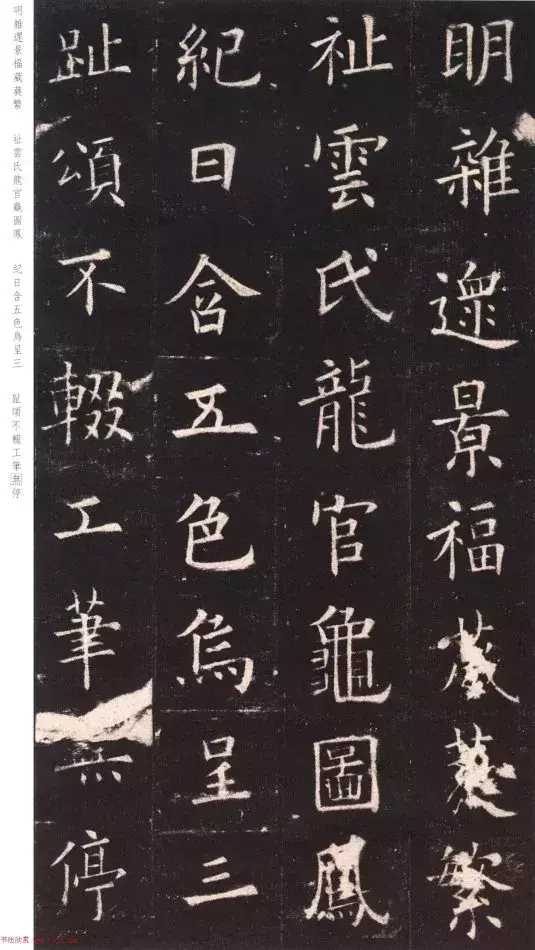 明雜還景福葳蕤繁
祉雲氏龍官龜圖鳳
紀日含五色烏呈三
趾頌不輟工筆無停
明雜還景福葳蕤繁 祉雲氏龍官龜圖鳳 紀日含五色烏呈三 趾頌不輟工筆無停
书法欣赏